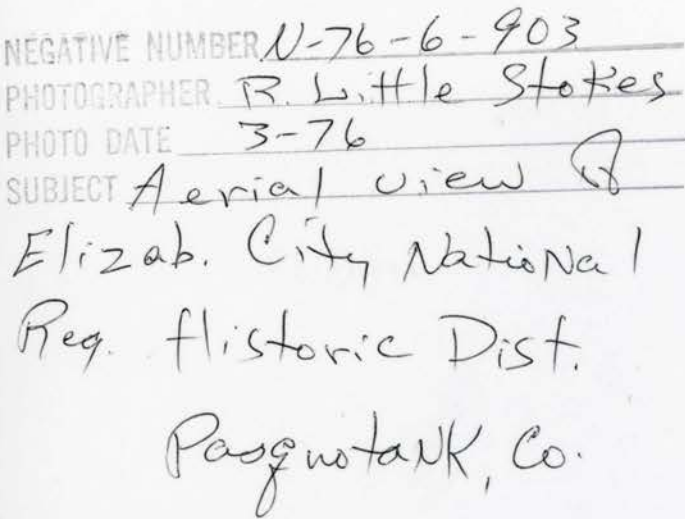 NEGATIVE NUMBER N-76-6-903
PHOTOGRAPHER R. Little Stokes
PHOTO DATE 3-76
SUBJECT Aerial view of
Elizab. City National
Reg. Historic Dist.
Pasquotank, Co.